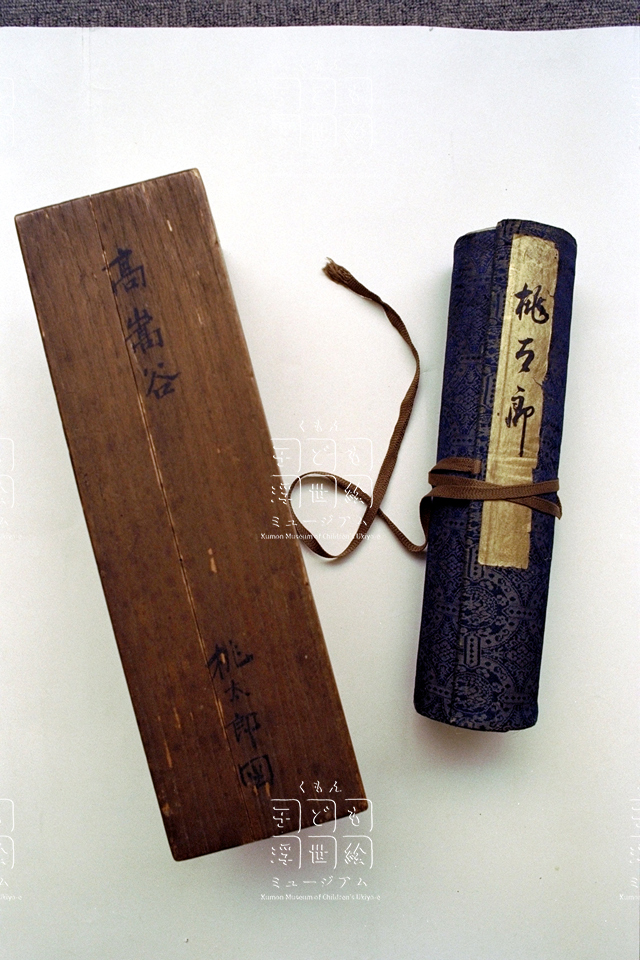 高嵩谷
桃太郎圖
桃太郎
くもん
子ども
浮世絵
ミュージアム
Kumon Museum of Children's Ukiyo-e
くもん
子ども
浮世絵
ミュージアム
Kumon Museum of Children's Ukiyo-e